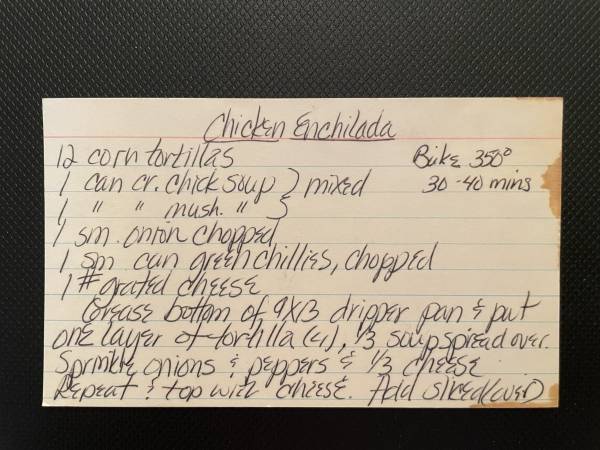 Chicken Enchilada
12 corn tortillas Bake 350°
1 can cr. chick soup } mixed 30-40 mins
1 " " mush. " }
1 sm. onion chopped
1 sm can green chillies, chopped
1 # grated cheese
Grease bottom of 9X13 dripper pan & put
one layer of tortilla (4), 1/3 soup spread over.
Sprinkle onions & peppers & 1/3 cheese
Repeat & top with cheese. Add sliced (over)